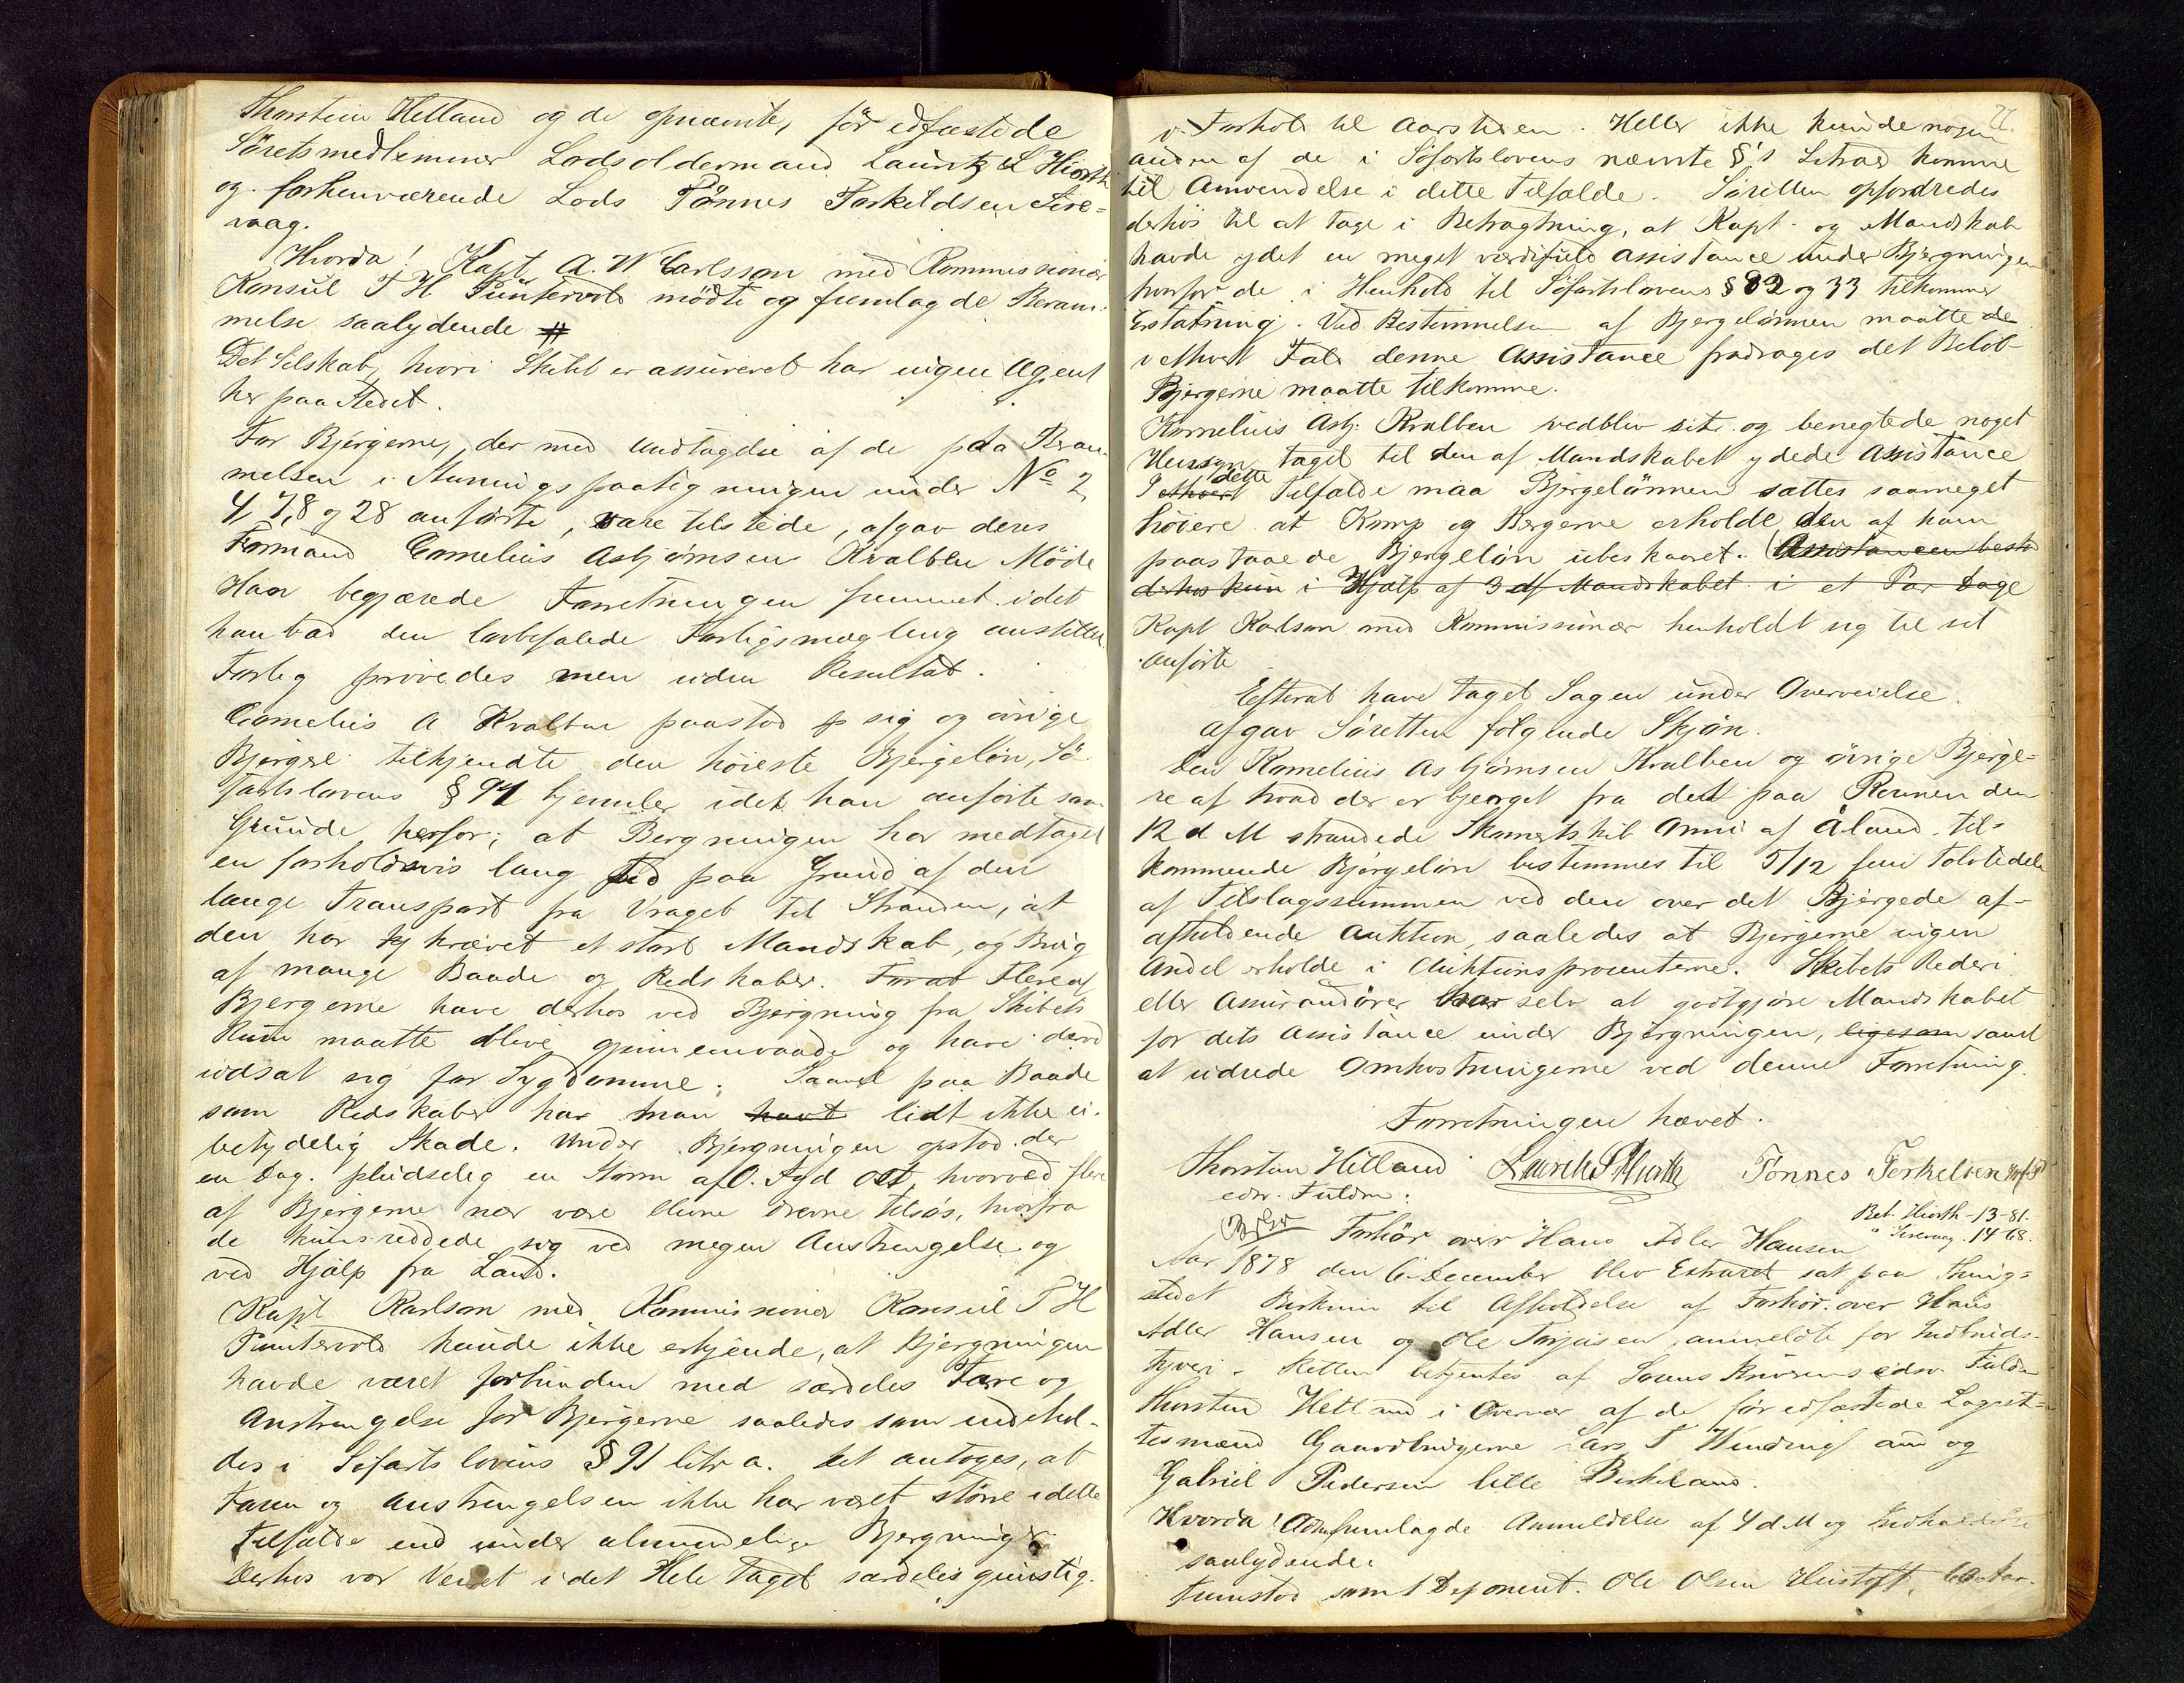 Thorstein Hetland og de opnævnte, før edfæstede
Søretsmedlemmer Lodsoldermand Lauritz L Hiorth
og forhenværende Lods Tönnes Torkildsen Sire=
vaag.
Hvorda! Kapt A. W Carlsson med Kommissionær
Konsul T H Puntervold mødte og fremlagde Beram-
melse saalydende #
Det Selskab, hvori Skibet er assureret har ingen Agent
her paa Stedet.
For Bjergerne, der med Undtagelse af de paa Beram-
melsen i Stevningspaategningen under No 2,
4, 7, 8 og 28 anførte, vare tilstede, afgav deres
Formand Cornelius Asbjørnsen Kvalben Møde
Han begjærede Forretningen fremmet idet
han bad den lovbefalede Forligsmægling anstillet
Forlig prøvedes men uden Resultat.
Cornelius A Kvalben paastod sig og øvrige
Bjergere tilkjendte den høieste Bjergeløn, Sø-
fartslovens § 94 hjemler idet han anførte som
Grunde herfor; at Bergningen har medtaget
en forholdsvis lang Tid paa Grund af den
lange Transport fra Vraget til Stranden, at
den har krævet et stort Mandskab, og Brug
af mange Baade og Redskaber. Forat Flere af
Bjergerne have derhos ved Bjergning fra Skibets
Rum maatte blive gjennemvaade og have derved
udsat sig for Sygdomme. Saavel paa Baade
som Redskaber har man havt lidt ikke u-
betydelig Skade. Under Bjergningen opstod der
en Dag pludselig en Storm af O. Syd Ost, hvorved flere
af Bjergerne nær vare blevne drevne tilsøs, hvorfra
de kun reddede sig ved megen Anstrengelse og
ved Hjælp fra Land.
Kapt Karlson med Kommissionær Konsul T H
Puntervold kunde ikke erkjende, at Bjergningen
havde været forbunden med særdeles Fare og
Anstrengelse for Bjergerne saaledes som indehol-
des i Søfartslovens § 91 litr a. Det antoges, at
Faren og Anstrengelsen ikke har været større i dette
Tilfælde end under almindelige Bjergninger
Derhos var Veiret i det Hele taget særdeles gunstig
i Forhold til Aarstiden. Heller ikke kunde nogen
anden af de i Søfartslovens nævnte §'s Litraer komme
til Anvendelse i dette Tilfælde. Søretten opfordredes
derhos til at tage i Betragtning, at Kapt. og Mandskab
havde ydet en meget værdifuld Assistance under Bjergningen
hvorfor de i Henhold til Søfartslovens § 82 og 33 tilkommer
Erstatning. Ved Bestemmelsen af Bjergelønnen maatte de
i ethvert Fald denne Assistance fradrages det Beløb
Bjergerne maatte tilkomme.
Kornelius Asbj. Kvalben vedblev sit og benegtede noget
Hensyn taget til den af Mandskabet ydede Assistance
I ethvert dette Tilfælde maa Bjergelønnen sættes saameget
høiere at Komp og Bergerne erholde den af ham
paastaaede Bjergeløn ubeskaaret. (Assistancen bestod
derhos kun i Hjælp af 3 af Mandskabet i et Par Dage
Kapt Karlson med Kommissionær henholdt sig til sit
Anførte
Efterat have taget Sagen under Overveielse
afgav Søretten følgende Skjøn.
Den Kornelius Asbjørnsen Kvalben og øvrige Bjerge=
re af hvad der er bjerget fra det paa Raunen den
12 d M strandede Skonnertskib Anni af Åland til-
kommende Bjergeløn bestemmes til 5/12 fem Tolvtedele
af Tilslagssummen ved den over det Bjergede af-
afholdende Auktion, saaledes at Bjergerne ingen
Andel erholde i Auktionsprocenterne. Skibets Rederi
eller Assurandører har selv at godtgjøre Mandskabet
for dets Assistance under Bjergningen, ligesom samt
at udrede Omkostningerne ved denne Forretning.
Forretningen hævet.
Thorstein Hetland Lauritz L Hiorth Tönnes Torkelsen
edsv. Fuldm.
Bet. Hiorth - 13-81.
" Sirevaag. 14-68.
Forhør over Hans Adler Hansen
Aar 1878 den 6 December blev Extraret sat paa Thing=
stedet Birkrim til Afholdelse af Forhør over Hans
Adler Hansen og Ole Torjusen, anmeldte for Indbruds-
tyveri. Retten betjentes af Sorenskriverens edsv. Fuldm
Thorstein Hetland i Overvær af de før edfæstede Lagret-
tesmænd Gaardbrugerne Lars T Vindingland og
Gabriel Pedersen lille Birkeland.
Hvorda! Adm fremlagde Anmeldelse af 4 d M og
saalydende.
Fremstod som 1 Deponent. Ole Olsen